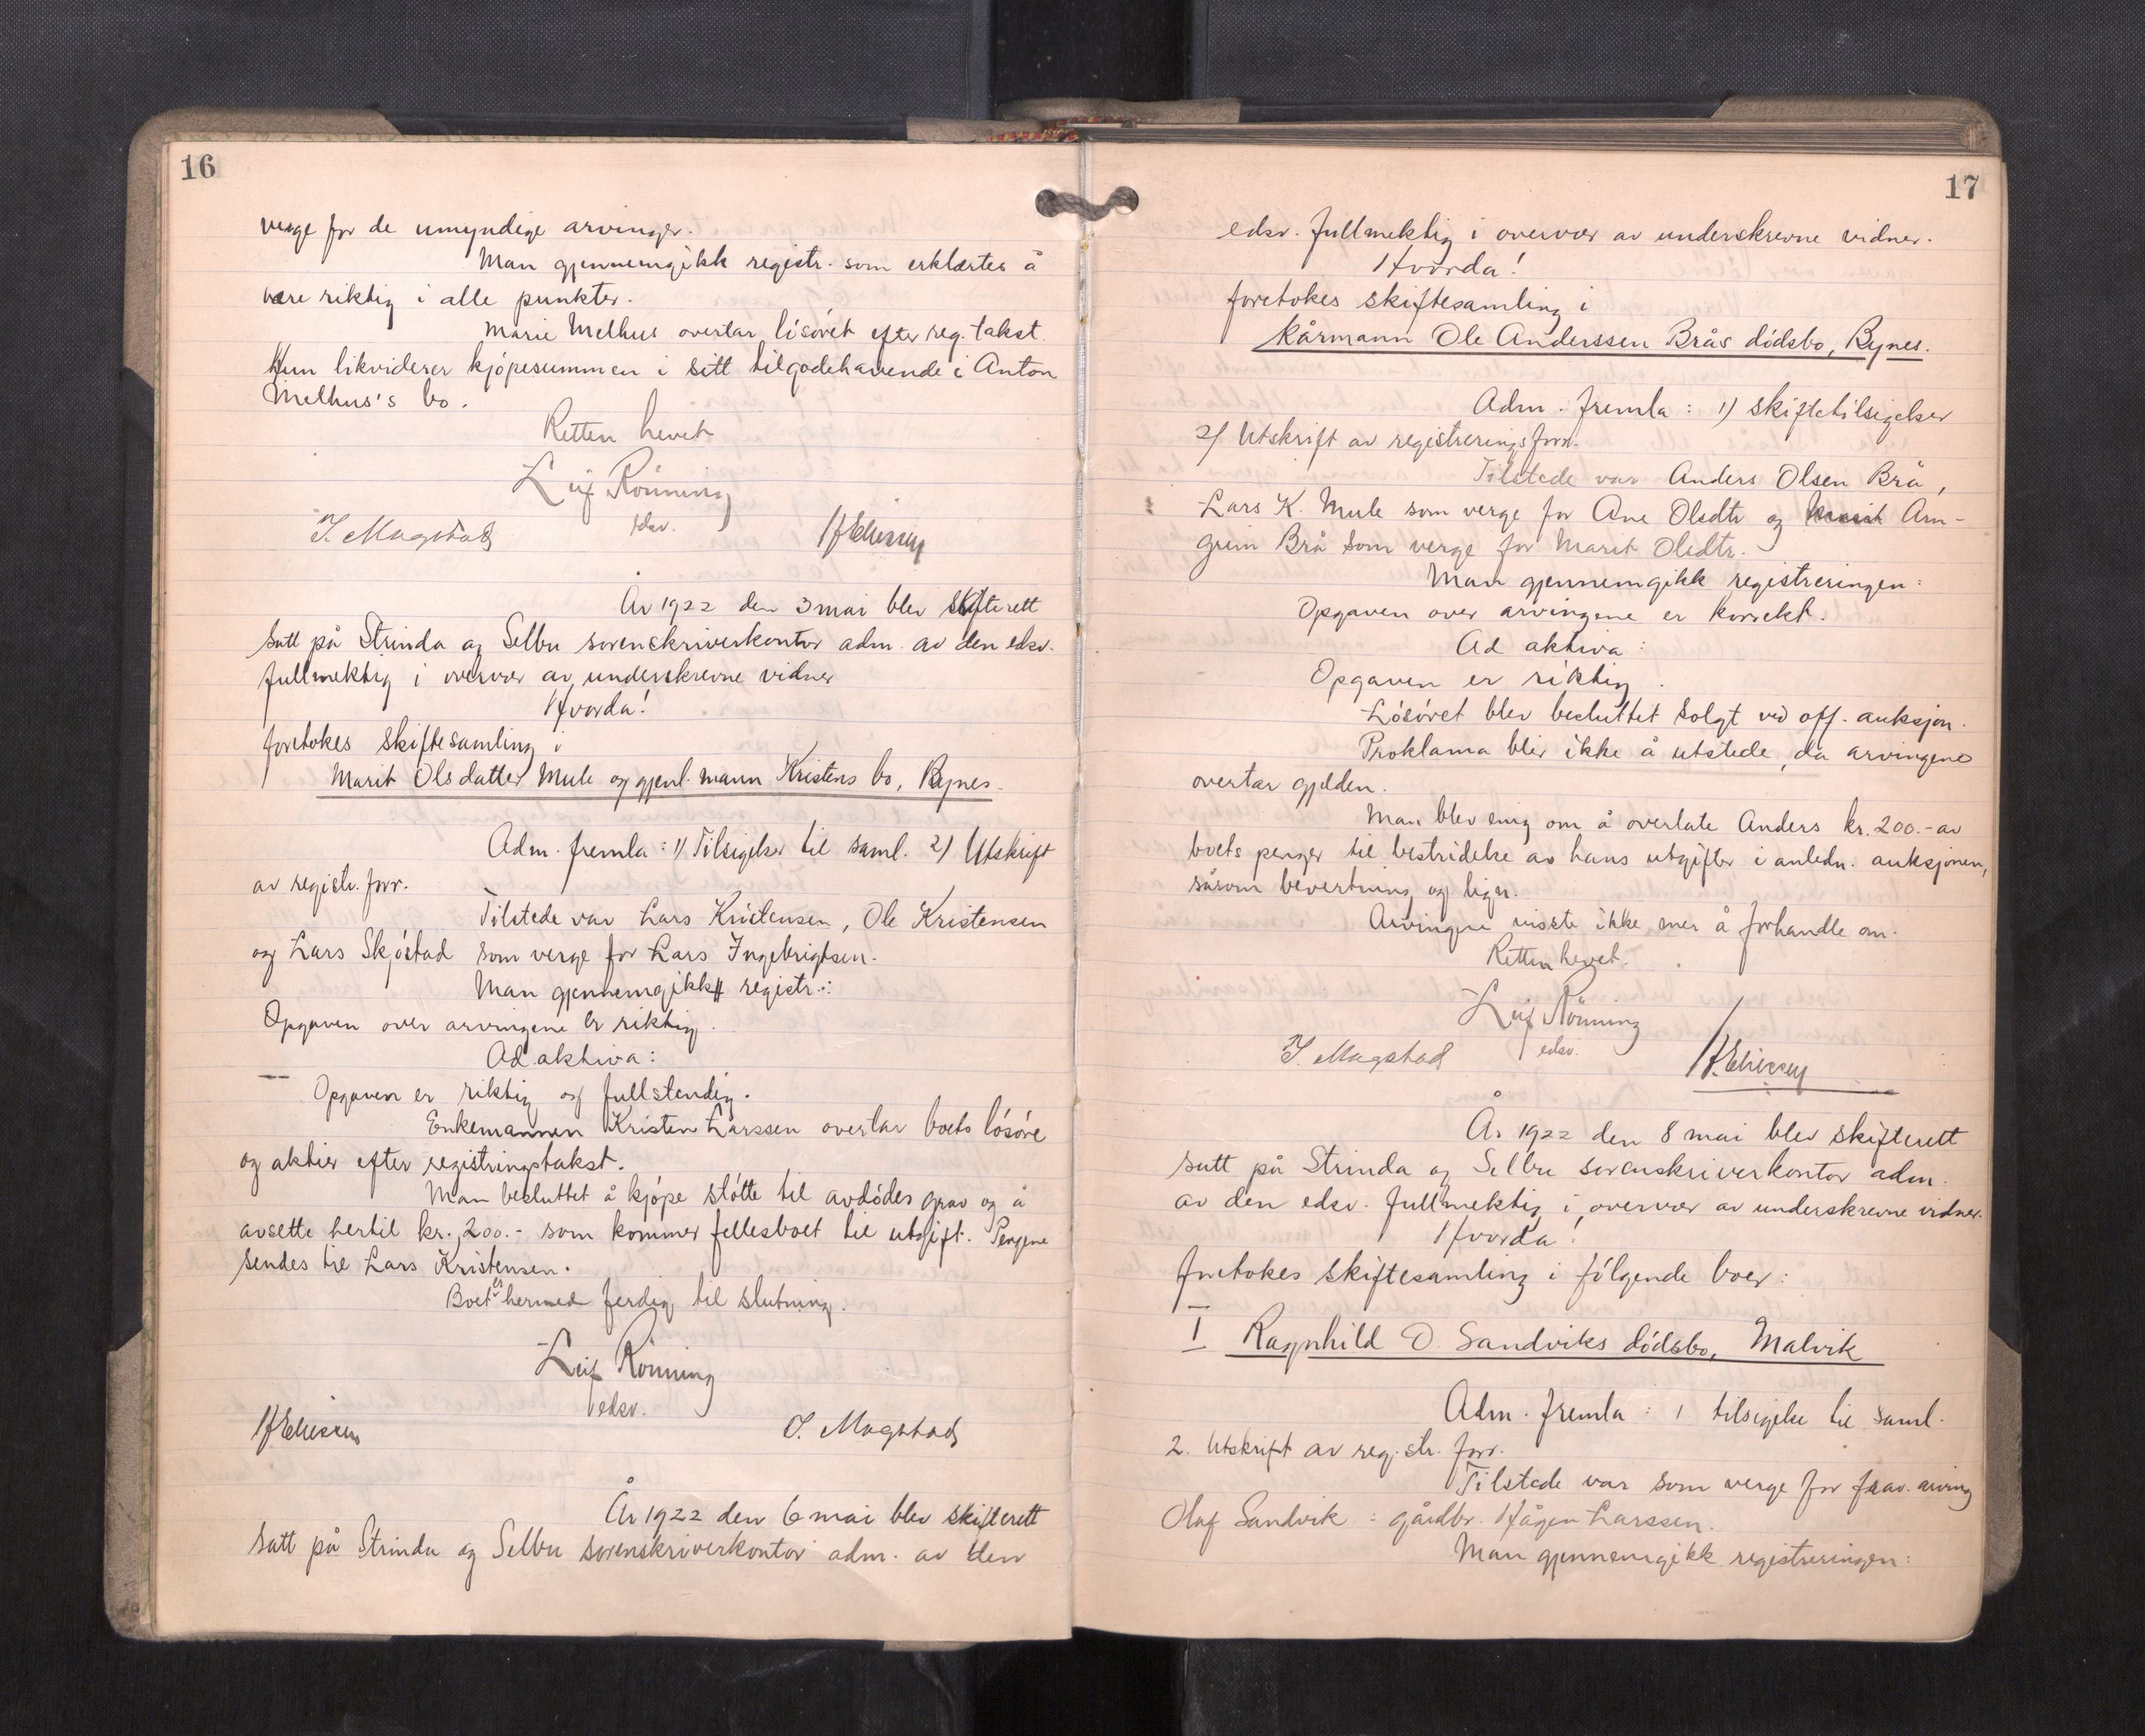 16
verge for de umyndige arvinger.
Man gjennemgikk registr. som erklærtes å
være riktig i alle punkter.
Marie Melhus overtar lösöret efter reg. takst.
Hun likviderer kjöpesummen i sitt tilgodehavende i Anton
Melhus's bo.
Retten hevet
Leif Rönning
edsv.
I. Magstad
År 1922 den 3 mai blev skifterett
satt på Strinda og Selbu sorenskriverkontor adm. av den edsv.
fullmektig i overvær av underskrevne vidner
Hvorda!
foretokes skiftesamling i
Marit Olsdatter Mule og gjenl. mann Kristens bo, Bynes.
Adm. fremla: 1) Tilsigelser til saml. 2) Utskrift
av registr. forr.
Tilstede var Lars Kristensen, Ole Kristensen
og Lars Skjöstad som verge for Lars Ingebrigtsen.
Man gjennemgikk registr.:
Opgaven over arvingene er riktig.
Ad aktiva:
Opgaven er riktig og fullstendig.
Enkemannen Kristen Larssen overtar boets lösöre
og aktier efter registringstakst.
Man besluttet å kjöpe stötte til avdödes grav og å
avsette hertil kr. 200.- som kommer fellesboet til utgift. Pengene
sendes til Lars Kristensen.
Boet er hermed ferdig til slutning.
Leif Rönning
edsv.
I. Magstad
År 1922 den 6 mai blev skifterett
satt på Strinda og Selbu sorenskriverkontor adm. av den
17
edsv. fullmektig i overvær av underskrevne vidner.
Hvorda!
foretokes skiftesamling i
Kårmann Ole Anderssen Brås dödsbo, Bynes.
Adm. fremla: 1) skiftetilsigelser
2) Utskrift av registreringsforr.
Tilstede var Anders Olsen Brå,
Lars K. Mule som verge for Ane Olsdtr og Arn-
grim Brå som verge for Marit Olsdtr.
Man gjennemgikk registreringen:
Opgaven over arvingene er korrekt.
Ad aktiva:
Opgaven er riktig.
Lösöret blev besluttet solgt ved off. auksjon.
Proklama blir ikke å utstede, da arvingene
overtar gjelden.
Man blev enig om å overlate Anders kr. 200.- av
boets penger til bestridelse av hans utgifter i anledn. auksjonen,
såsom bevertning og lign.
Arvingene visste ikke mer å forhandle om.
Retten hevet.
Leif Rönning
edsv.
I. Magstad
År 1922 den 8 mai blev skifterett
satt på Strinda og Selbu sorenskriverkontor adm.
av den edsv. fullmektig i overvær av underskrevne vidner.
Hvorda!
foretokes skiftesamling i fölgende boer:
I Ragnhild O. Sandviks dödsbo, Malvik
Adm. fremla: 1 tilsigelse til saml.
2. Utskrift av registr. forr.
Tilstede var som verge for frav. arving
Olaf Sandvik: gårdbr. Hågen Larssen.
Man gjennemgikk registreringen: